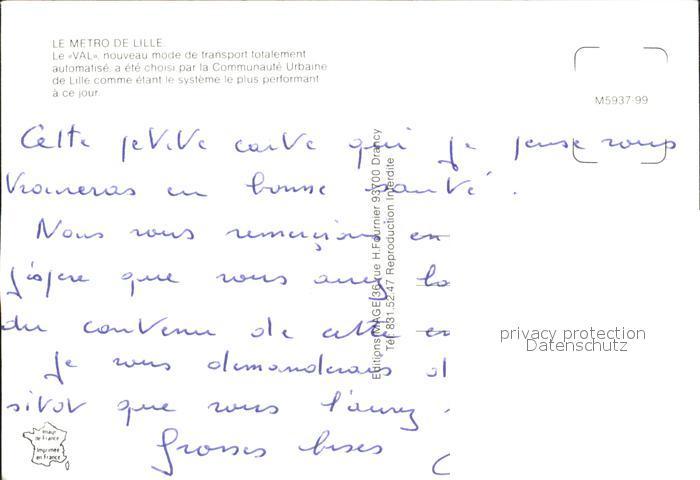 LE METRO DE LILLE.
Le «VAL», nouveau mode de transport totalement
automatisé, a été choisi par la Communauté Urbaine
de Lille comme étant le système le plus performant
à ce jour.
M5937-99
Cette petite carte qui je pense vous
trouveras en bonne santé.
Nous vous remerçions en
j'espere que vous aurez
du contenu de cette
Je vous demanderais d
sitot que vous l'aurez
Grosses bises
Editions IMAGE 36, rue H. Fournier 93700 Drancy
Tél. 831.52.47 Reproduction Interdite
privacy protection
Datenschutz
Image
de France
Imprimée
en France